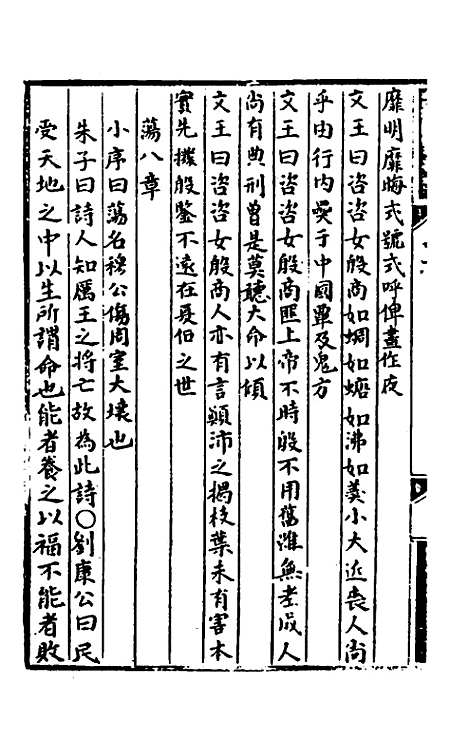 靡明靡晦式號式呼俾晝作夜
文王曰咨咨女殷商如蜩如螗如沸如羹小大近喪人尚
乎由行内奰于中國覃及鬼方
文王曰咨咨女殷商匪上帝不時殷不用舊雖無老成人
尚有典刑曾是莫聽大命以傾
文王曰咨咨女殷商人亦有言顛沛之揭枝葉未有害本
實先撥殷鑒不遠在夏后之世
蕩八章
小序曰蕩名穆公傷周室大壞也
朱子曰詩人知厲王之將亡故為此詩○劉康公曰民
受天地之中以生所謂命也能者養之以福不能者敗